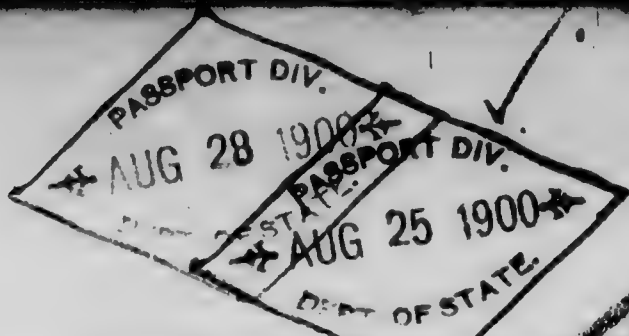 PASSPORT DIV.
AUG 28 1900
DEPT OF STATE.
PASSPORT DIV.
AUG 25 1900
DEPT OF STATE.